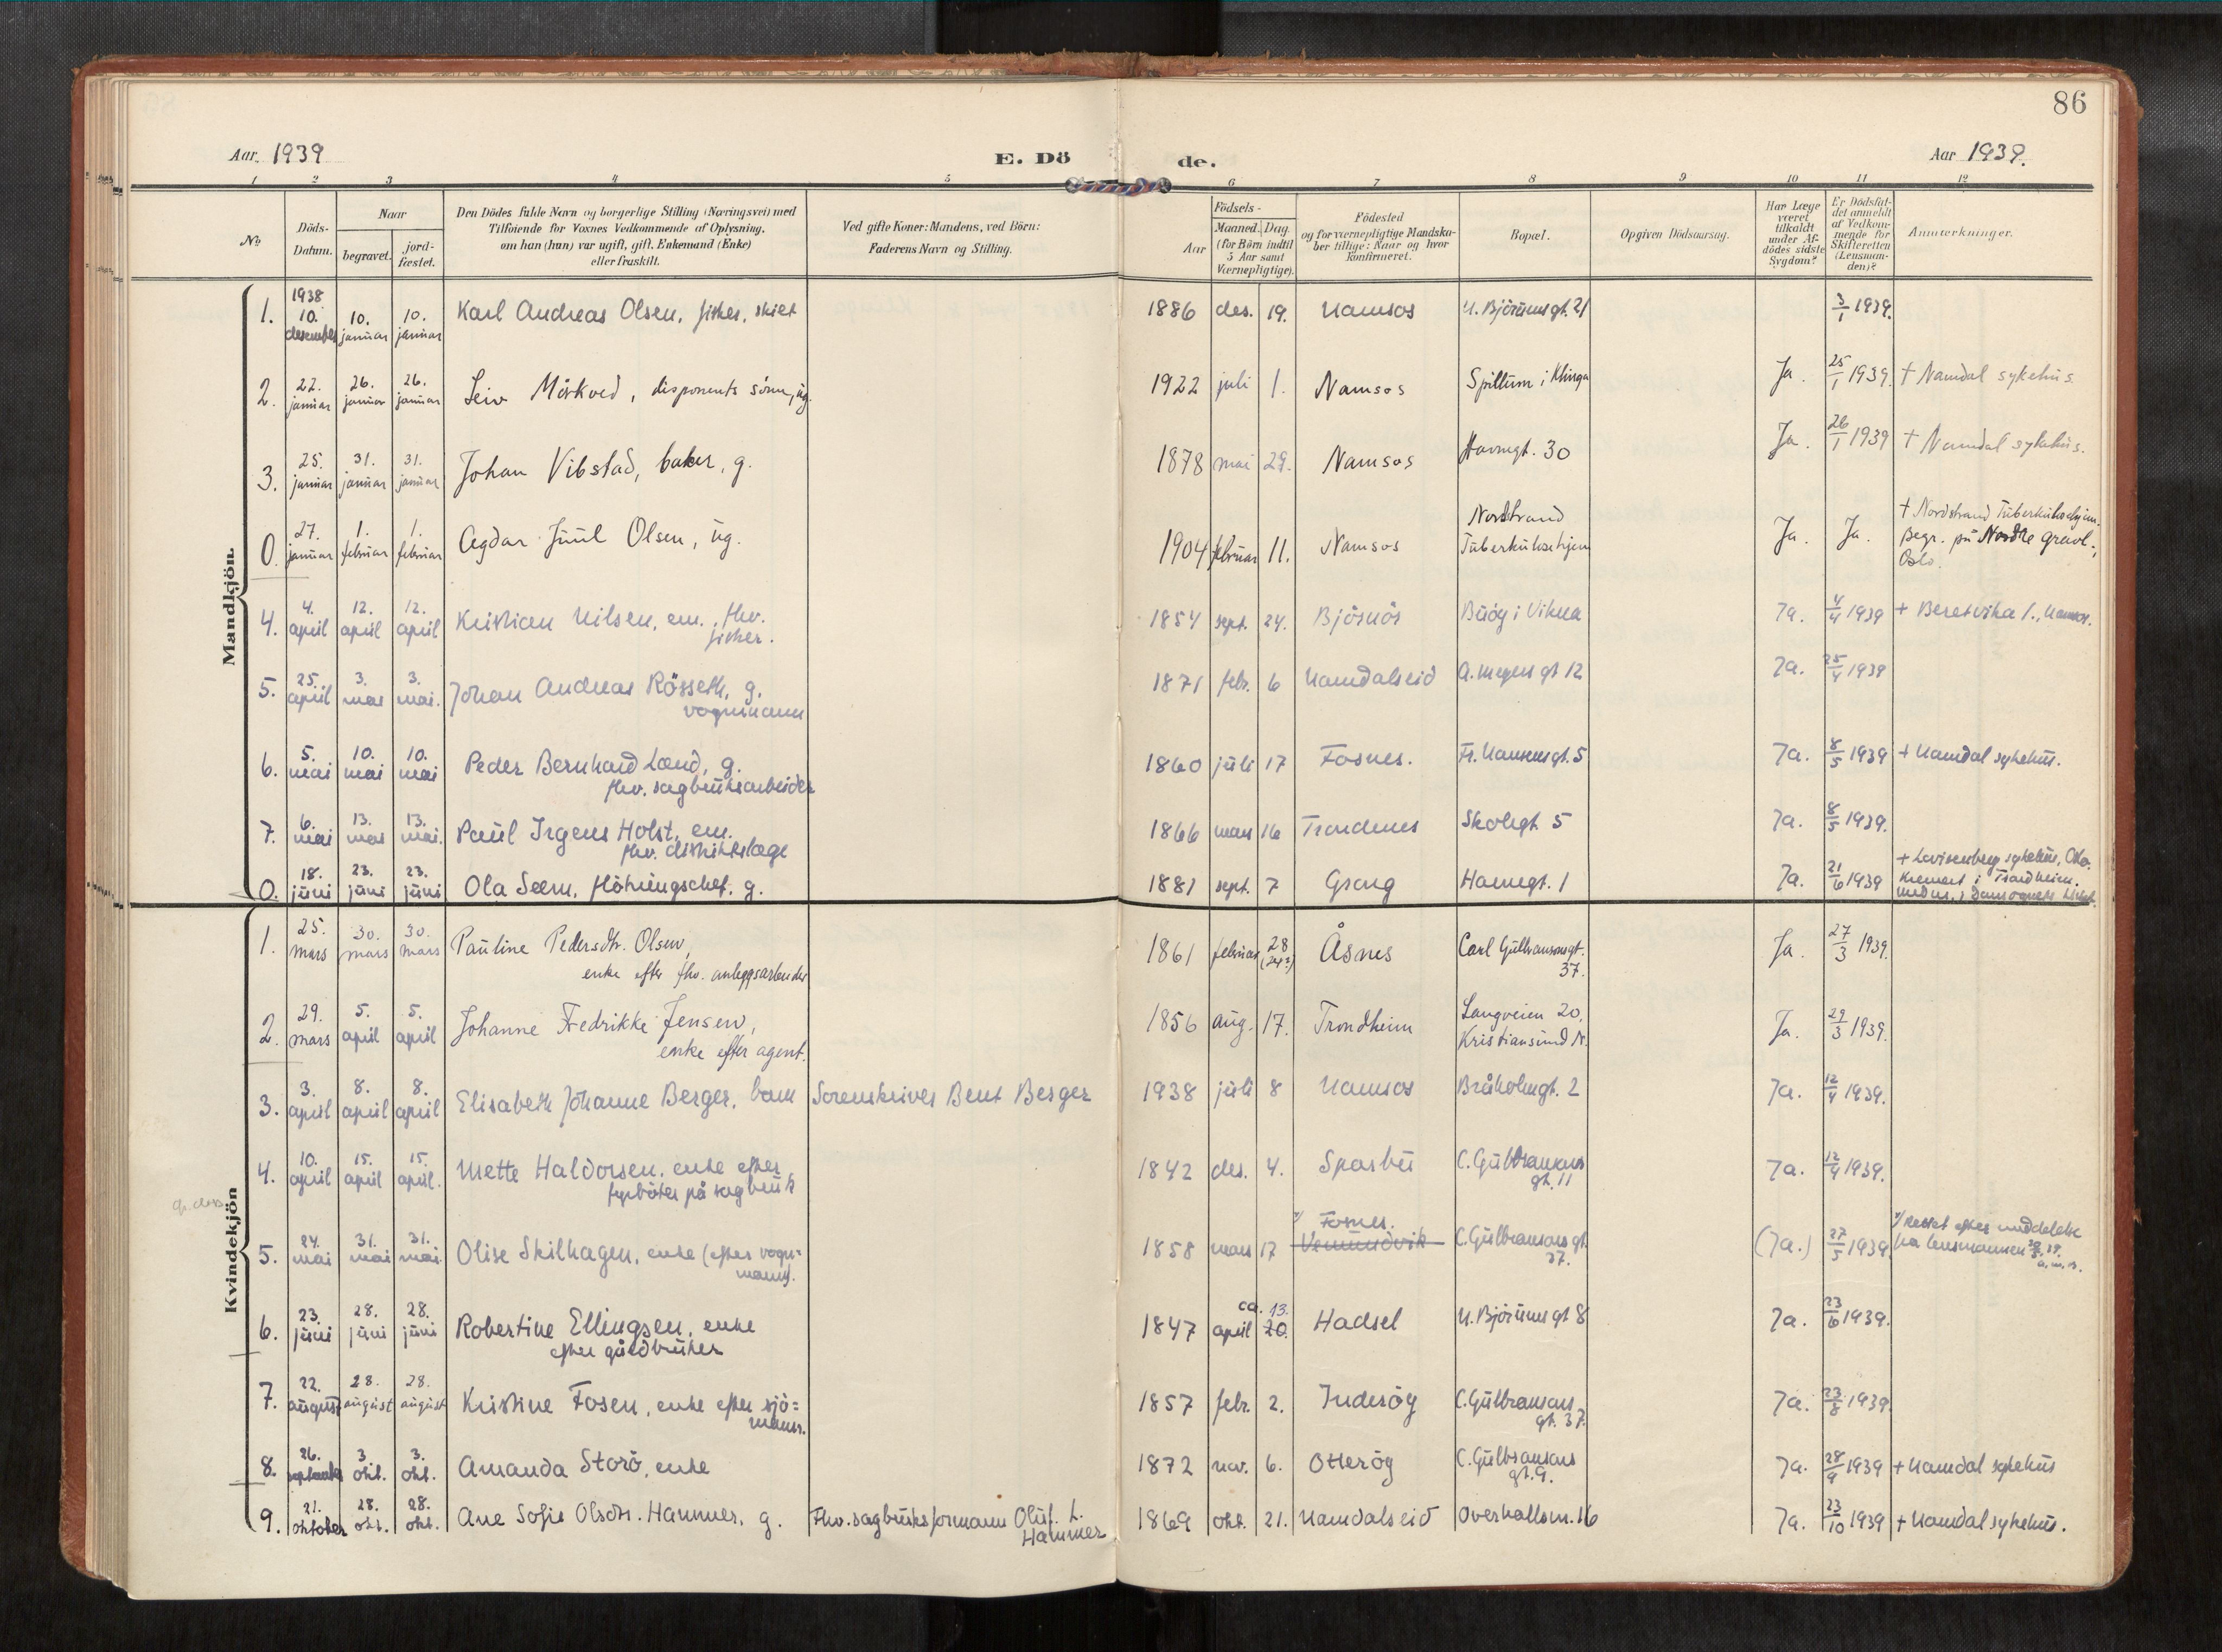 86
Aar. 1939
E. Dö
de.
Aar 1939.
1 2 3 4 5 6 7 8 9 10 11 12
No
Döds-
Datum.
Naar
begravet.
jord-
fæstet.
Den Dödes fulde Navn og borgerlige Stilling (Næringsvei) med
Tilföiende for Voxnes Vedkommende af Oplysning,
om han (hun) var ugift, gift, Enkemand (Enke)
eller fraskilt.
Ved gifte Koner: Mandens, ved Börn:
Faderens Navn og Stilling.
Födsels-
Aar
Maaned. Dag.
(for Börn indtil
5 Aar samt
Værnepligtige).
Födested
og for værnepligtige Mandska-
ber tillige: Naar og hvor
konfirmeret.
Bopæl.
Opgiven Dödsaarsag.
Har Læge
været
tilkaldt
under Af-
dödes sidste
Sygdom?
Er Dödsfal-
det anmeldt
af Vedkom-
mende for
Skifteretten
(Lensman-
den)?
Anmærkninger.
Mandkjön.
1. 1938 10. desember 10. januar 10. januar Karl Andreas Olsen, fisker, skilt 1886 des. 19. Namsos N. Bjørumsgt. 21 3/1 1939.
2. 22. januar 26. januar 26. januar Leiv Mörkved, disponents sönn, ug. 1922 juli 1. Namsos Spillum i Klinga Ja. 25/1 1939. + Namdal sykehus.
3. 25. januar 31. januar 31. januar Johan Vibstad, baker, g. 1878 mai 29. Namsos Havnegt. 30 Ja. 26/1 1939 + Namdal sykehus.
0. 27. januar 1. februar 1. februar Agdar Juul Olsen, ug. 1904 februar 11. Namsos Nordstrand
Tuberkulosehjem Ja. Ja. + Nordstrand Tuberkulosehjem.
Begr. på Nordre gravl.,
Oslo.
4. 4. april 12. april 12. april Kristian Nilsen, em., fhv.
fisker. 1854 sept. 24. Bjösnös Buöy i Vikna Ja. 4/4 1939 + Beretvika 1., Namsos.
5. 25. april 3. mai 3. mai. Johan Andreas Rösseth, g.
vognmann 1871 febr. 6 Namdalseid A. Meyers gt 12 Ja. 25/4 1939
6. 5. mai 10. mai 10. mai Peder Bernhard Lænd, g.
fhv. sagbruksarbeider 1860 juli 17 Fosnes. Fr. Nansensgt. 5 Ja. 8/5 1939 + Namdal sykehus.
7. 6. mai 13. mai 13. mai. Paul Irgens Holst, em.
fhv. distriktslæge 1866 mars 16 Trondenes Skolegt. 5 Ja. 8/5 1939.
0. 18. juni 23. juni 23. juni Ola Seem, flötningschef. g. 1881 sept. 7 Grong Havnegt. 1 Ja. 21/6 1939 + Lovisenberg sykehus, Oslo.
Kremert i Trondheim.
Kvindekjön
1. 25. mars 30. mars 30. mars Pauline Pedersdtr. Olsen,
enke efter fhv. anleggsarbeider 1861 februar 28 Åsnes Carl Gulbransonsgt.
37. Ja. 27/3 1939.
2. 29. mars 5. april 5. april Johanne Fredrikke Jensen,
enke efter agent. 1856 aug. 17. Trondheim Langveien 20,
Kristiansund N. Ja. 29/3 1939.
3. 3. april 8. april 8. april Elisabeth Johanne Berger, barn Sorenskriver Bent Berger 1938 juli 8 Namsos Bråholmgt. 2 Ja. 12/4 1939.
4. 10. april 15. april 15. april. Mette Haldorsen, enke efter
fyrböter på sagbruk 1842 des. 4. Sparbu C. Gulbransons
gt. 11 Ja. 12/4 1939.
5. 24. mai 31. mai 31. mai. Olise Skilhagen, enke (efter vogn-
mann). 1858 mars 17 Fosnes.
Vemundvik C. Gulbransons gt.
37. (Ja.) 27/5 1939 Rettet efter meddelelse
fra lensmannen
6. 23. juni 28. juni 28. juni Robertine Ellingsen, enke
efter gårdbruker 1847 ca. april 13. 20. Hadsel N. Bjørumsgt 8 Ja. 23/6 1939.
7. 22. august 28. august 28. august Kristine Fosen, enke efter sjö-
mann. 1857 febr. 2. Inderöy C. Gulbransons
gt. 37. Ja. 23/8 1939.
8. 26. september 3 okt. 3. okt. Amanda Storö, enke 1872 nov. 6. Otteröy C. Gulbransons
gt. 9. Ja. 28/9 1939 + Namdal sykehus
9. 21. oktober 28. okt. 28. okt. Ane Sofie Olsdtr. Hammer, g. Fhv. sagbruksformann Oluf L.
Hammer 1869 okt. 21. Namdalseid Overhallsv. 16 Ja. 23/10 1939 + Namdal sykehus.